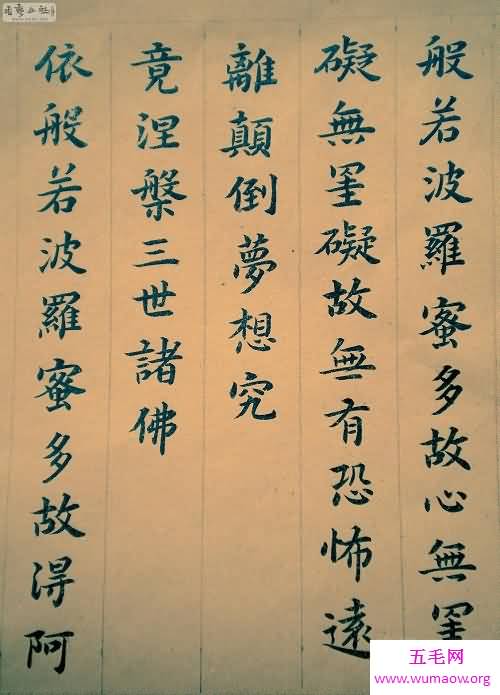 般若波羅蜜多故心無罣
礙無罣礙故無有恐怖遠
離顛倒夢想究
竟涅槃三世諸佛
依般若波羅蜜多故得阿
五毛网
www.wumaow.org